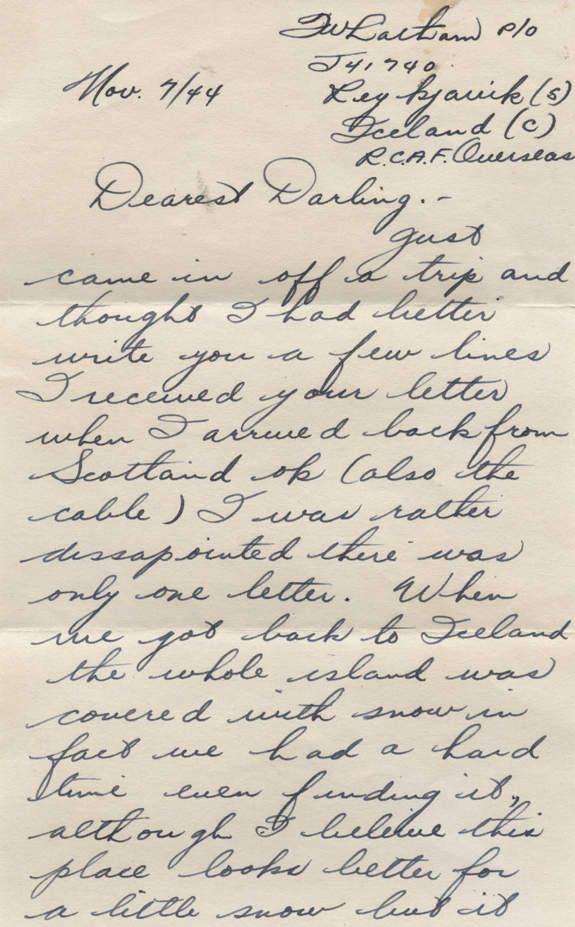 JW Latham P/O
J41740.
Nov. 7/44
Reykjavik (S)
Iceland (C)
R.C.A.F. Overseas
Dearest Darling.-
Just
came in off a trip and
thought I had better
write you a few lines
I received your letter
when I arrived back from
Scotland ok (also the
cable) I was rather
dissapointed there was
only one letter. When
we got back to Iceland
the whole island was
covered with snow in
fact we had a hard
time even finding it,
although I beleive this
place looks better for
a little snow but it